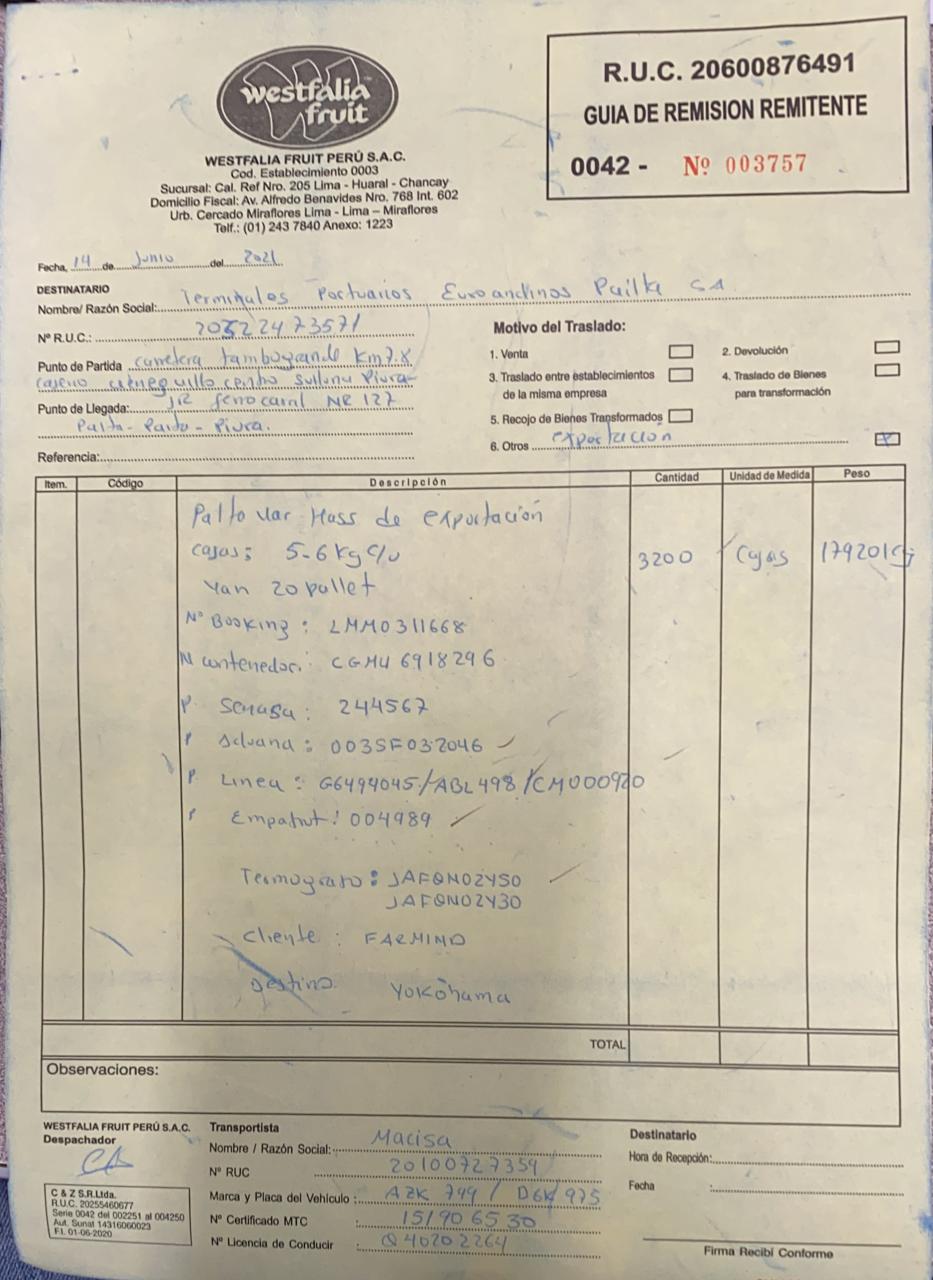 westfalia
fruit
WESTFALIA FRUIT PERÚ S.A.C.
Cod. Establecimiento 0003
Sucursal: Cal. Ref Nro. 205 Lima - Huaral - Chancay
Domicilio Fiscal: Av. Alfredo Benavides Nro. 768 Int. 602
Urb. Cercado Miraflores Lima - Lima – Miraflores
Telf.: (01) 243 7840 Anexo: 1223
R.U.C. 20600876491
GUIA DE REMISION REMITENTE
0042 - Nº 003757
Fecha, 14 de Junio del 2021
DESTINATARIO
Nombre/ Razón Social: Terminales Portuarios Euroandinos Paita SA
Nº R.U.C.: 20522473571
Punto de Partida carretera tambogrande Km 7.8
caserio cieneguillo centro Sullana Piura
Punto de Llegada: JR ferrocaral NR 127
Paita - Paita - Piura.
Referencia:
Motivo del Traslado:
1. Venta
2. Devolución
3. Traslado entre establecimientos
de la misma empresa
4. Traslado de Bienes
para transformación
5. Recojo de Bienes Transformados
6. Otros exportacion
Item. Código Descripción Cantidad Unidad de Medida Peso
Palto var Hass de exportación
cajas: 5-6 kg c/u 3200 Cajas 17920
Van 20 pallet
Nº Booking: LMM0311668
N contenedor: CGMU 6918296
P. Senasa: 244567
P Aduana: 003SF032046
P. Linea: G6494045/ABL498/CM000920
P 004989
Termografo: JAFQN02Y50
JAFQN02Y30
Cliente: FARMIND
Destino Yokohama
TOTAL
Observaciones:
WESTFALIA FRUIT PERÚ S.A.C.
Despachador
C & Z S.R.Ltda.
R.U.C. 20255460677
Serie 0042 del 002251 al 004250
Aut. Sunat 14316060023
F.I. 01-06-2020
Transportista
Nombre / Razón Social: Macisa
Nº RUC 20100727359
Marca y Placa del Vehículo: AZK 799 / D6K 975
Nº Certificado MTC : 151906530
Nº Licencia de Conducir : Q40202264
Destinatario
Hora de Recepción:
Fecha :
Firma Recibí Conforme